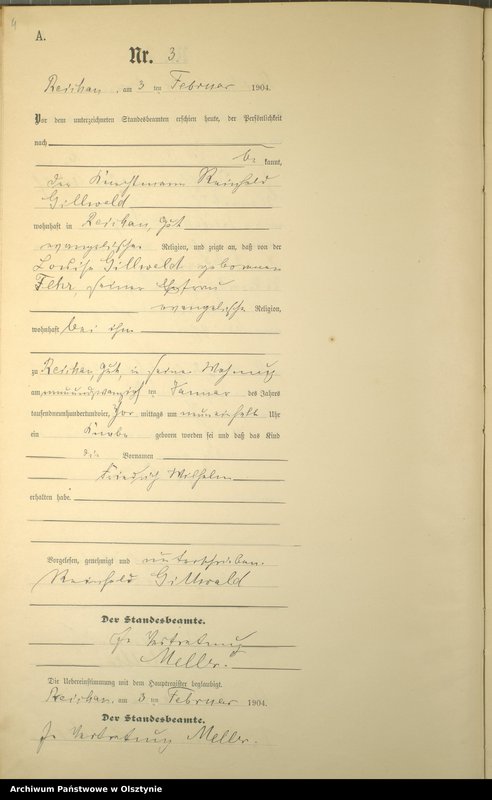 4
A.
Nr. 3.
Reichau, am 3 ten Februar 1904.
Vor dem unterzeichneten Standesbeamten erschien heute, der Persönlichkeit
nach
be kannt,
der Knechtmann Reinhold
Gillwald
wohnhaft in Reichau, Gut
evangelischer Religion, und zeigte an, daß von der
Louise Gillwald geborenen
Fehr, seiner Ehefrau
evangelische Religion,
wohnhaft bei ihm
zu Reichau, Gut, in seiner Wohnung
am neunundzwanzigsten Januar des Jahres
tausendneunhundertundvier, Vor mittags um neuneinhalb Uhr
ein Knabe geboren worden sei und daß das Kind
die Vornamen
Friedrich Wilhelm
erhalten habe.
Vorgelesen, genehmigt und unterschrieben.
Reinhold Gillwald
Der Standesbeamte.
In Vertretung
Meller.
Die Uebereinstimmung mit dem Hauptregister beglaubigt.
Reichau, am 3 ten Februar 1904.
Der Standesbeamte.
In Vertretung Meller.
Archiwum Państwowe w Olsztynie